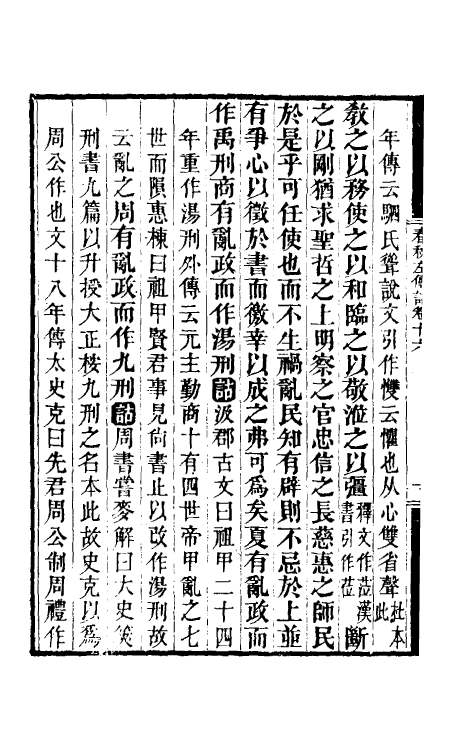 年傳云駟氏聳說文引作㩳云懼也从心雙省聲杜本此
敎之以務使之以和臨之以敬涖之以彊釋文作莅漢書引作莅斷
之以剛猶求聖哲之上明察之官忠信之長慈惠之師民
於是乎可任使也而不生禍亂民知有辟則不忌於上並
有爭心以徵於書而徼幸以成之弗可爲矣夏有亂政而
作禹刑商有亂政而作湯刑詁汲郡古文曰祖甲二十四
年重作湯刑外傳云元王勤商十有四世帝甲亂之七
世而隕惠棟曰祖甲賢君事見尙書止以改作湯刑故
云亂之周有亂政而作九刑詁周書嘗麥解曰大史筴
刑書九篇以升授大正桉九刑之名本此故史克以爲
周公作也文十八年傳太史克曰先君周公制周禮作
春秋左傳詁卷十六